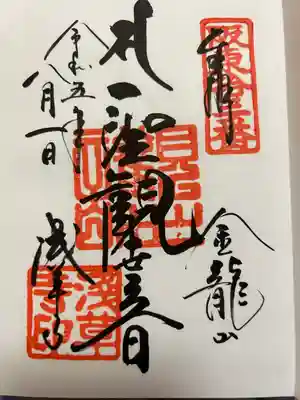 奉拝
金龍山
聖観世音
浅草寺
令和五年
八月一日
浅草寺印